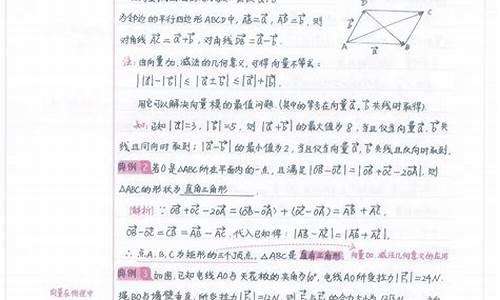 为邻边的平行四边形ABCD中, \vec{AB}=\vec{a}, \vec{AD}=\vec{b}, 则
对角线 \vec{AC}=\vec{a}+\vec{b}, 对角线 \vec{DB}=\vec{a}-\vec{b}.
D C
\vec{b}
A \vec{a} B
注: 由向量加、减法的几何意义, 可得向量不等式:
||\vec{a}|-|\vec{b}|| ≤ |\vec{a}±\vec{b}| ≤ |\vec{a}|+|\vec{b}|.
用它可以解决向量模的最值问题. (其中的等号在向量\vec{a}、\vec{b}共线时取得).
如: 已知|\vec{a}|=3, |\vec{b}|=5, 则|\vec{a}+\vec{b}|的最大值为8, 当且仅当向量\vec{a}、\vec{b}共
线且同向时取到; |\vec{a}-\vec{b}|的最小值为2, 当且仅当向量\vec{a}、\vec{b}共线且同向时取到.
典例2 若O是△ABC所在平面内的一点, 且满足|\vec{OB}-\vec{OC}|=|\vec{OB}+\vec{OC}-2\vec{OA}|, 则
△ABC的形状为 直角三角形.
[解析] ∵ \vec{OB}+\vec{OC}-2\vec{OA}=(\vec{OB}-\vec{OA})+(\vec{OC}-\vec{OA})=\vec{AB}+\vec{AC},
\vec{OB}-\vec{OC}=\vec{CB}=\vec{AB}-\vec{AC}. 代入已知得: |\vec{AB}-\vec{AC}|=|\vec{AB}+\vec{AC}|,
∴ 点A、B、C为矩形的三个顶点, △ABC是直角三角形. 向量加、减法几何意义的应用
典例3 如图, 已知电线AO与天花板的夹角为60°, 电线AO所受拉力|\vec{F_1}|=24N.
向量在物理中
绳BO与墙壁垂直, 所受拉力|\vec{F_2}|=12N. 则